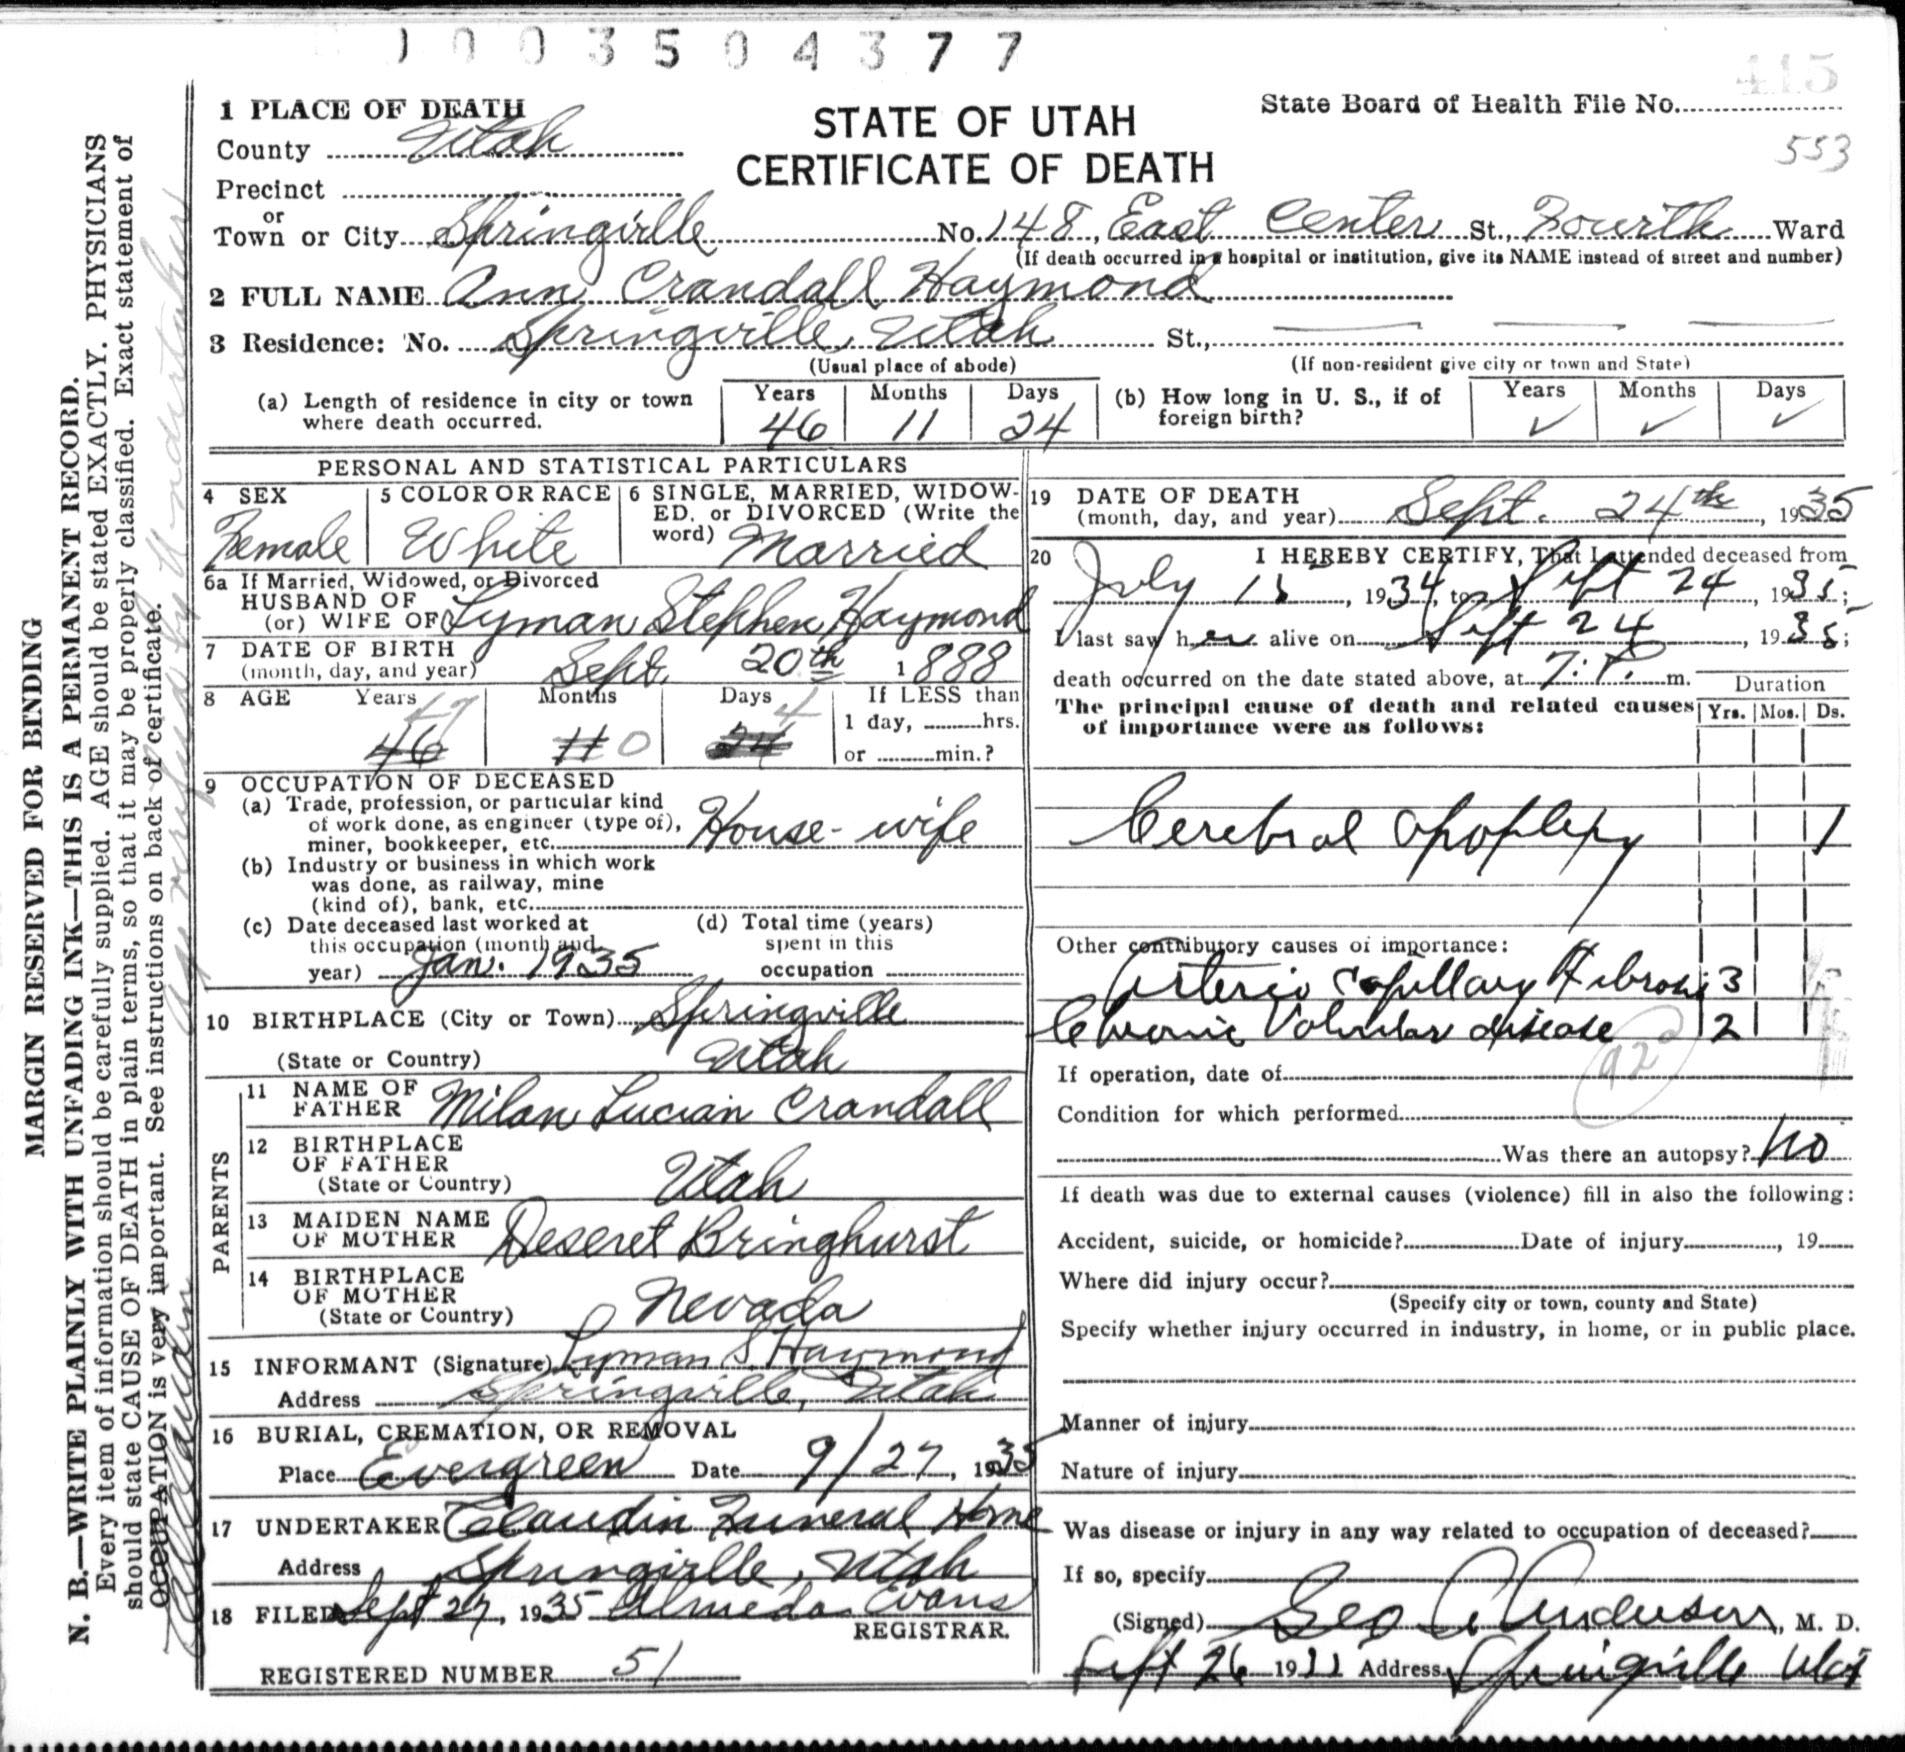 0 0 3 5 0 4 3 7 7
415
1 PLACE OF DEATH
STATE OF UTAH
CERTIFICATE OF DEATH
State Board of Health File No.
553
County Utah
Precinct
or
Town or City Springville No. 148, East Center St., Fourth Ward
(If death occurred in a hospital or institution, give its NAME instead of street and number)
2 FULL NAME Ann Crandall Haymond
3 Residence: No. Springville, Utah St.,
(Usual place of abode) (If non-resident give city or town and State)
(a) Length of residence in city or town where death occurred. Years 46 Months 11 Days 24
(b) How long in U. S., if of foreign birth? Years ✓ Months ✓ Days ✓
PERSONAL AND STATISTICAL PARTICULARS
4 SEX
Female
5 COLOR OR RACE
White
6 SINGLE, MARRIED, WIDOW-
ED, or DIVORCED (Write the
word) Married
6a If Married, Widowed, or Divorced
HUSBAND OF
(or) WIFE OF Lyman Stephen Haymond
7 DATE OF BIRTH
(month, day, and year) Sept. 20th 1888
8 AGE Years Months Days If LESS than
47 4 1 day, hrs.
46 11 0 24 or min.?
9 OCCUPATION OF DECEASED
(a) Trade, profession, or particular kind
of work done, as engineer (type of),
miner, bookkeeper, etc. House-wife
(b) Industry or business in which work
was done, as railway, mine
(kind of), bank, etc.
(c) Date deceased last worked at
this occupation (month and
year) Jan. 1935
(d) Total time (years)
spent in this
occupation
10 BIRTHPLACE (City or Town) Springville
(State or Country) Utah
PARENTS
11 NAME OF
FATHER Milan Lucian Crandall
12 BIRTHPLACE
OF FATHER
(State or Country) Utah
13 MAIDEN NAME
OF MOTHER Deseret Bringhurst
14 BIRTHPLACE
OF MOTHER
(State or Country) Nevada
15 INFORMANT (Signature) Lyman S. Haymond
Address Springville, Utah
16 BURIAL, CREMATION, OR REMOVAL
Place Evergreen Date 9/27, 1935
17 UNDERTAKER Claudin Funeral Home
Address Springville, Utah
18 FILED Sept 27, 1935 Almeda Evans
REGISTRAR.
REGISTERED NUMBER 51
19 DATE OF DEATH
(month, day, and year) Sept. 24th, 1935
20 I HEREBY CERTIFY, That I attended deceased from
July 15, 1934, to Sept 24, 1935;
I last saw her alive on Sept 24, 1935;
death occurred on the date stated above, at 7:P.m.
Duration
The principal cause of death and related causes Yrs. Mos. Ds.
of importance were as follows:
Cerebral Apoplexy 1
Other contributory causes of importance:
Arterio Capillary Fibrosis 3
Chronic Valvular disease 2
If operation, date of
Condition for which performed
Was there an autopsy? No
If death was due to external causes (violence) fill in also the following:
Accident, suicide, or homicide? Date of injury, 19
Where did injury occur?
(Specify city or town, county and State)
Specify whether injury occurred in industry, in home, or in public place.
Manner of injury
Nature of injury
Was disease or injury in any way related to occupation of deceased?
If so, specify
(Signed) Geo A Anderson, M. D.
Sept 26 19 Address Springville Utah
MARGIN RESERVED FOR BINDING
N. B.—WRITE PLAINLY WITH UNFADING INK—THIS IS A PERMANENT RECORD.
Every item of information should be carefully supplied. AGE should be stated EXACTLY. PHYSICIANS
should state CAUSE OF DEATH in plain terms, so that it may be properly classified. Exact statement of
OCCUPATION is very important. See instructions on back of certificate.
by Undertaker